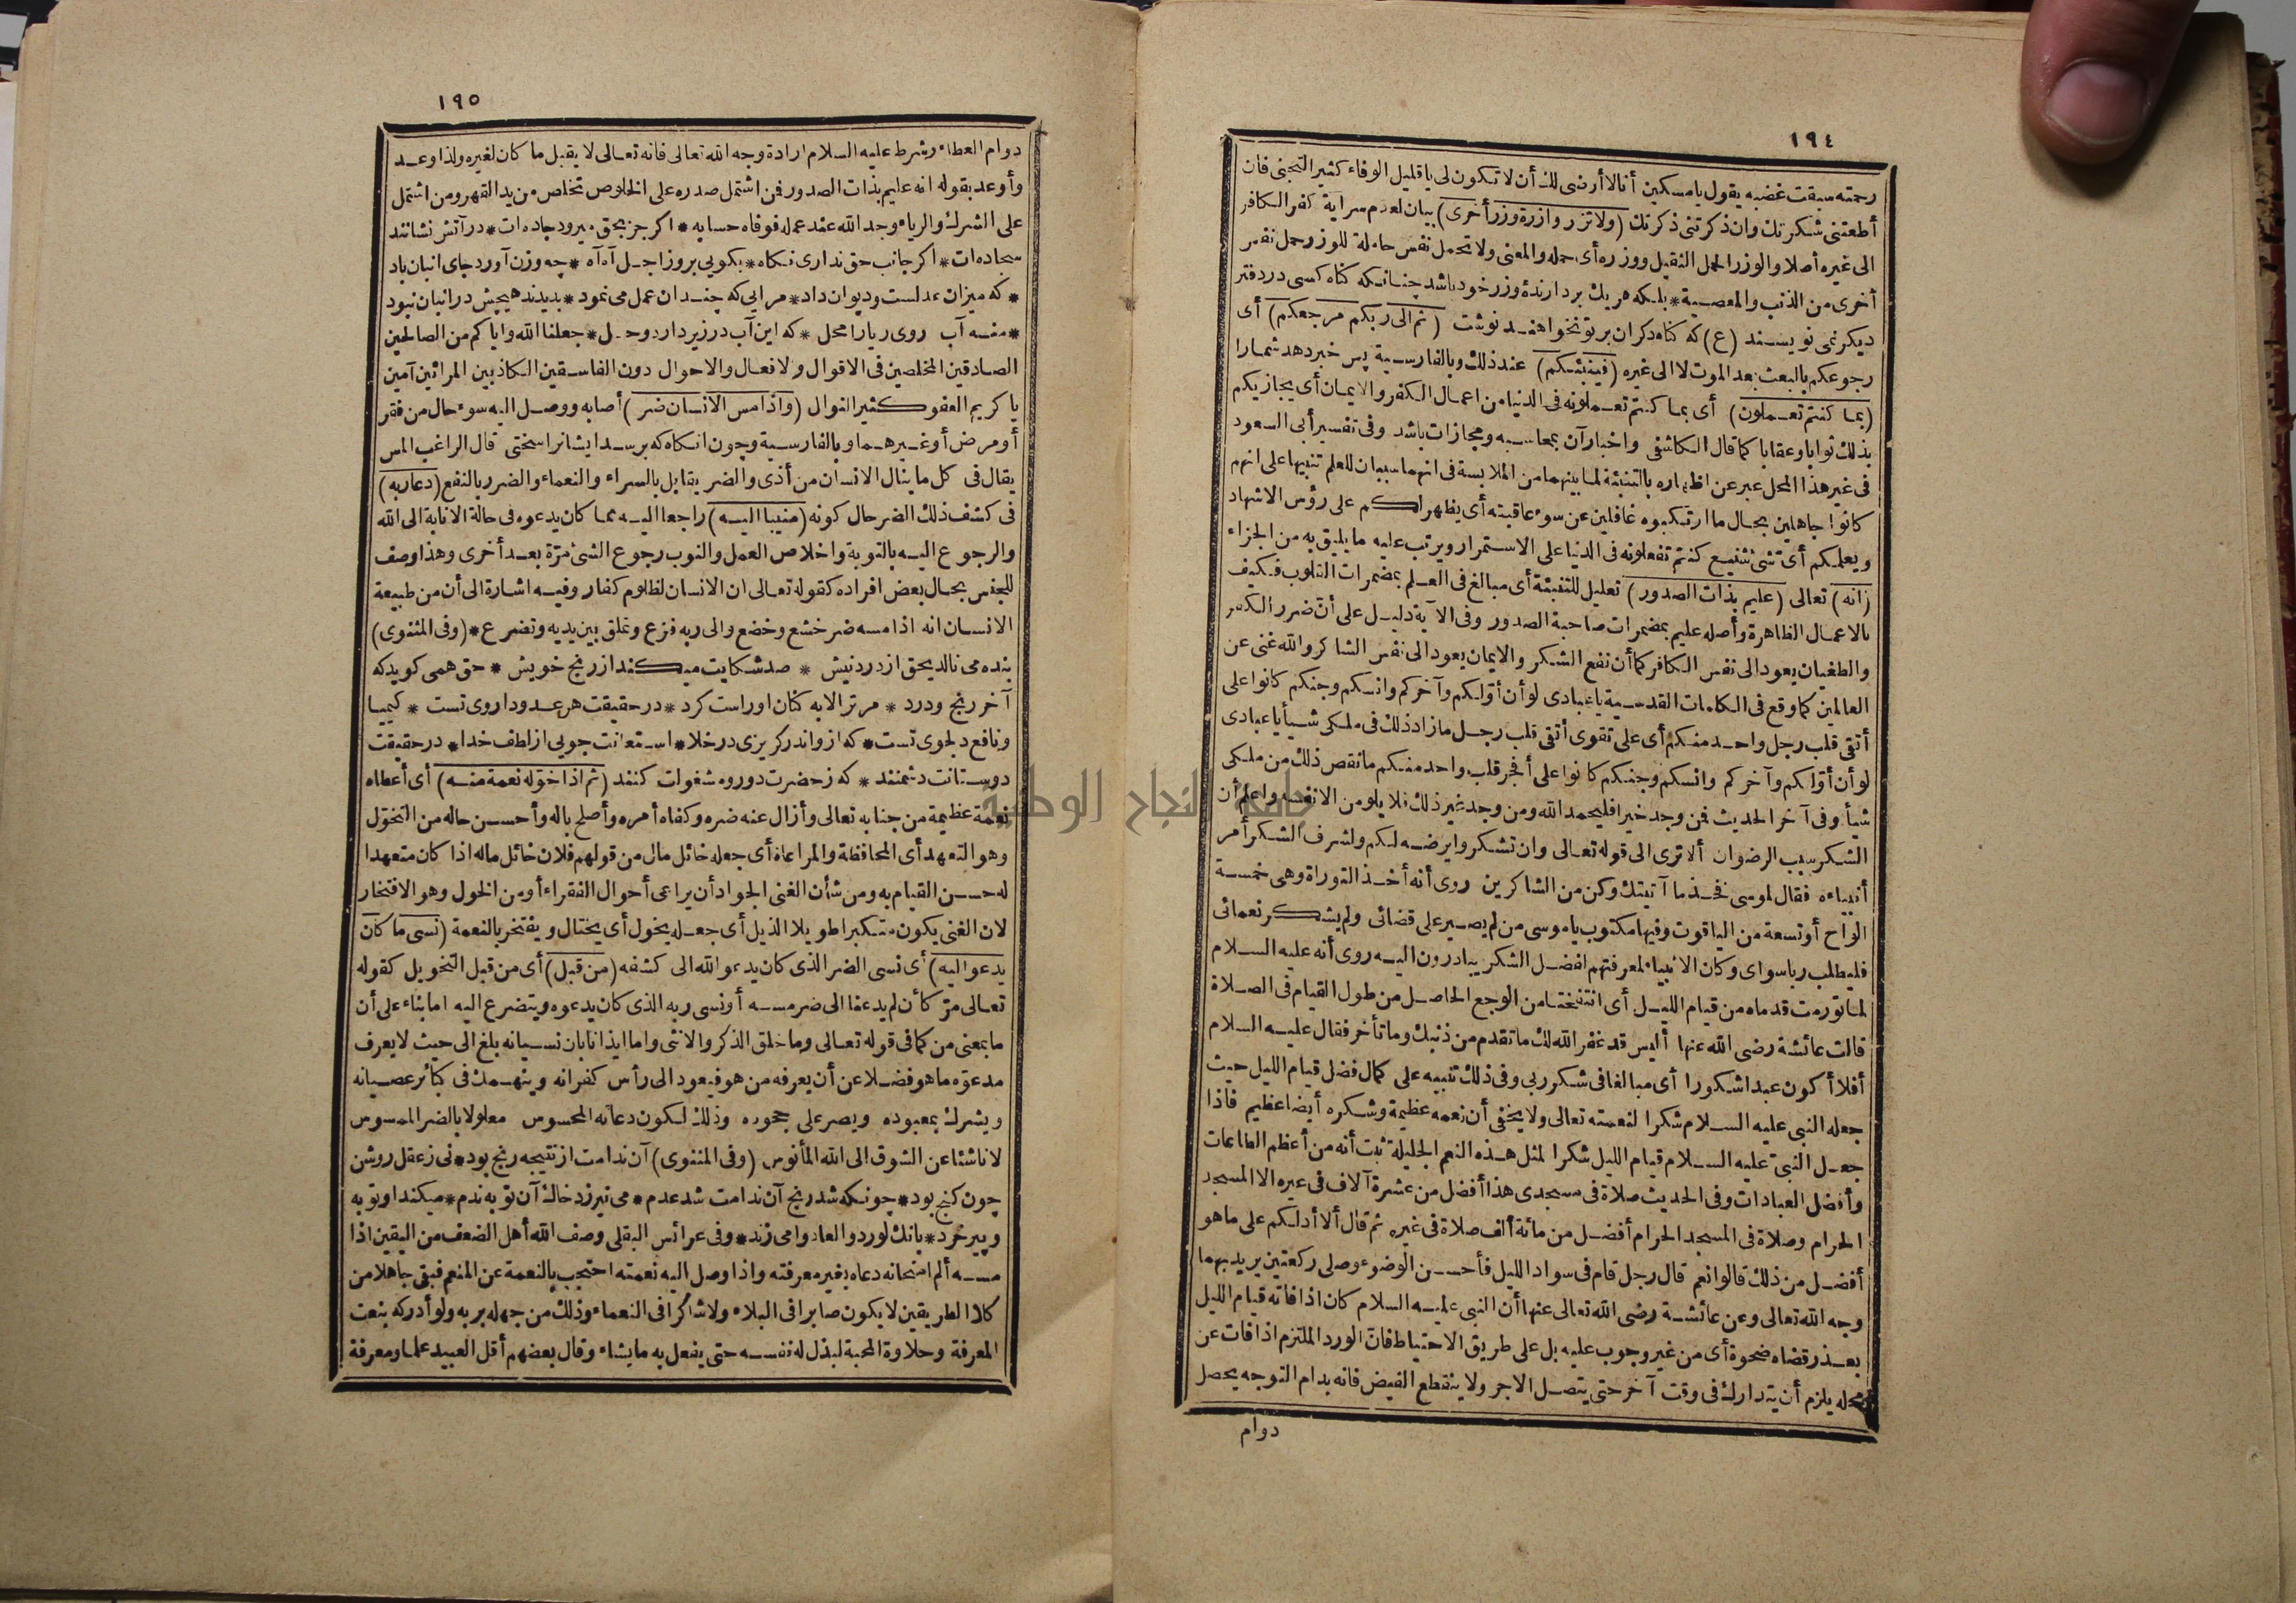 ١٩٤
رحمته سبقت غضبه يقول يا مسكين أنا لا أرضى لك أن لا تكون لى يا قليل الوفاء كثير التجنى فان
أطعتنى شكرتك وان ذكرتنى ذكرتك (ولا تزر وازرة وزر أخرى) بيان لعدم سراية كفر الكافر
الى غيره أصلا والوزر الحمل الثقيل ووزره أى حمله والمعنى ولا تحمل نفس حاملة للوزر حمل نفس
أخرى من الذنب والمعصية * بلكه هريك بردارندۀ وزر خود باشد چنانكه كناه كسى در دفتر
ديكر نمى نويسند (ع) كه كناه دكران بر تو نخواهند نوشت (ثم الى ربكم مرجعكم) أى
رجوعكم بالبعث بعد الموت لا الى غيره (فينبئكم) عند ذلك وبالفارسية پس خبر دهد شمارا
(بما كنتم تعملون) أى بما كنتم تعملونه فى الدنيا من اعمال الكفر والايمان أى يجازيكم
بذلك ثوابا وعقابا كما قال الكاشفى واخبار آن بمحاسبه ومجازات باشد وفى تفسير أبى السعود
فى غير هذا المحل عبر عن اظهاره بالتنبئة لما بينهما من الملابسة فى انهما سببان للعلم تنبيها على انهم
كانوا جاهلين بحال ما ارتكبوه غافلين عن سوء عاقبته أى يظهر لكم على رؤس الاشهاد
ويعلمكم أى شئ شنيع كنتم تفعلونه فى الدنيا على الاستمرار ويرتب عليه ما يليق به من الجزاء
(انه) تعالى (عليم بذات الصدور) تعليل للتنبئة أى مبالغ فى العلم بمضمرات القلوب فكيف
بالاعمال الظاهرة وأصله عليم بمضمرات صاحبة الصدور وفى الآية دليل على أن ضرر الكفر
والطغيان يعود الى نفس الكافر كما أن نفع الشكر والايمان يعود الى نفس الشاكر والله غنى عن
العالمين كما وقع فى الكلمات القدسية يا عبادى لو أن أولكم وآخركم وانسكم وجنكم كانوا على
أتقى قلب رجل واحد منكم أى على تقوى أتقى قلب رجل ما زاد ذلك فى ملكى شيأ يا عبادى
لو أن أولكم وآخركم وانسكم وجنكم كانوا على أفجر قلب واحد منكم ما نقص ذلك من ملكى
شيأ وفى آخر الحديث فمن وجد خيرا فليحمد الله ومن وجد غير ذلك فلا يلومن الا نفسه واعلم أن
الشكر سبب الرضوان ألا ترى الى قوله تعالى وان تشكروا يرضه لكم ولشرف الشكر أمر
أنبياءه فقال لموسى فخذ ما آتيتك وكن من الشاكرين روى أنه أخذ التوراة وهى خمسة
الواح أو تسعة من الياقوت وفيها مكتوب يا موسى من لم يصبر على قضائى ولم يشكر نعمائى
فليطلب ربا سواى وكان الانبياء لمعرفتهم افضل الشكر يبادرون اليه روى أنه عليه السلام
لما تورمت قدماه من قيام الليل أى انتفختا من الوجع الحاصل من طول القيام فى الصلاة
قالت عائشة رضى الله عنها أليس قد غفر الله لك ما تقدم من ذنبك وما تأخر فقال عليه السلام
أفلا أكون عبدا شكورا أى مبالغا فى شكر ربى وفى ذلك تنبيه على كمال فضل قيام الليل حيث
جعله النبى عليه السلام شكرا لنعمته تعالى ولا يخفى أن نعمه عظيمة وشكره أيضا عظيم فاذا
جعل النبى عليه السلام قيام الليل شكرا لمثل هذه النعم الجليلة ثبت أنه من أعظم الطاعات
وأفضل العبادات وفى الحديث صلاة فى مسجدى هذا أفضل من عشرة آلاف فى غيره الا المسجد
الحرام وصلاة فى المسجد الحرام أفضل من مائة ألف صلاة فى غيره ثم قال ألا أدلكم على ما هو
أفضل من ذلك قالوا نعم قال رجل قام فى سواد الليل فأحسن الوضوء وصلى ركعتين يريد بهما
وجه الله تعالى وعن عائشة رضى الله تعالى عنها أن النبى عليه السلام كان اذا فاته قيام الليل
بعذر قضاه ضحوة أى من غير وجوب عليه بل على طريق الاحتياط فان الورد الملتزم اذا فات عن
محله يلزم أن يتدارك فى وقت آخر حتى يتصل الاجر ولا ينقطع الفيض فانه بدام التوجه يحصل
دوام
١٩٥
دوام العطاء وشرط عليه السلام ارادة وجه الله تعالى فانه تعالى لا يقبل ما كان لغيره ولذا وعد
وأوعد بقوله انه عليم بذات الصدور فمن اشتمل صدره على الخلوص تخلص من يد القهر ومن اشتمل
على الشرك والرياء وجد الله عند عمله فوفاه حسابه * اكر جز بحق ميرود جاده ات * در آتش نشانند
سجاده ات * اكر جانب حق ندارى نكاه * بكويى بروز اجل آه آه * چه وزن آورد جاى انبان باد
* كه ميزان عدلست وديوان داد * مرايى كه چندان عمل مى نمود * بديدند هيچش در انبان نبود
* منه آب روى ريا را محل * كه اين آب در زير دارد وحل * جعلنا الله واياكم من الصالحين
الصادقين المخلصين فى الاقوال والافعال والاحوال دون الفاسقين الكاذبين المرائين آمين
يا كريم العفو كثير النوال (واذا مس الانسان ضر) أصابه ووصل اليه سوء حال من فقر
أو مرض أو غيرهما وبالفارسية وچون انكاه كه برسد ايشانرا سختى قال الراغب المس
يقال فى كل ما ينال الانسان من أذى والضر يقابل بالسراء والنعماء والضرر بالنفع (دعا ربه)
فى كشف ذلك الضر حال كونه (منيبا اليه) راجعا اليه مما كان يدعوه فى حالة الانابة الى الله
والرجوع اليه بالتوبة واخلاص العمل والنوب رجوع الشئ مرّة بعد أخرى وهذا وصف
للجنس بحال بعض افراده كقوله تعالى ان الانسان لظلوم كفار وفيه اشارة الى أن من طبيعة
الانسان انه اذا مسه ضر خشع وخضع والى ربه فزع وتملق بين يديه وتضرع * (وفى المثنوى)
بنده مى نالد بحق از درد نيش * صد شكايت ميكند از رنج خويش * حق همى كويد كه
آخر رنج ودرد * مر ترا لابه كنان او راست كرد * در حقيقت هر عدو داروى تست * كيميا
ونافع دلجوى تست * كه ازو اندر كريزى در خلا * استعانت جويى از لطف خدا * در حقيقت
دوستانت دشمنند * كه ز حضرت دور ومشغولت كنند (ثم اذا خوّله نعمة منه) أى أعطاه
نعمة عظيمة من جنابه تعالى وأزال عنه ضره وكفاه أمره وأصلح باله وأحسن حاله من التخوّل
وهو التعهد أى المحافظة والمراعاة أى جعله خائل مال من قولهم فلان خائل ماله اذا كان متعهدا
له حسن القيام به ومن شأن الغنى الجواد أن يراعى أحوال الفقراء أو من الخول وهو الافتخار
لان الغنى يكون متكبرا طويلا الذيل أى جعله يخول أى يختال ويفتخر بالنعمة (نسى ما كان
يدعو اليه) أى نسى الضر الذى كان يدعو الله الى كشفه (من قبل) أى من قبل التخويل كقوله
تعالى مرّ كأن لم يدعنا الى ضر مسه أو نسى ربه الذى كان يدعوه ويتضرع اليه اما بناء على أن
ما بمعنى من كما فى قوله تعالى وما خلق الذكر والانثى واما ايذانا بان نسيانه بلغ الى حيث لا يعرف
مدعوّه ما هو فضلا عن أن يعرفه من هو فيعود الى رأس كفرانه وينهمك فى كبائر عصيانه
ويشرك بمعبوده ويصر على جحوده وذلك لكون دعائه المحسوس معلولا بالضر الممسوس
لا ناشئا عن الشوق الى الله المأنوس (وفى المثنوى) آن ندامت از نتيجه رنج بود * نى ز عقل روشن
چون كنج بود * چونكه شد رنج آن ندامت شد عدم * مى نيرزد خاك آن توبه ندم * ميكند او توبه
وپير خرد * بانك لو ردوا لعادوا مى زند * وفى عرائس البقلى وصف الله أهل الضعف من اليقين اذا
مسه ألم امتحانه دعاه بغير معرفته واذا وصل اليه نعمته احتجب بالنعمة عن المنعم فبقى جاهلا من
كلا الطريقين لا يكون صابرا فى البلاء ولا شاكرا فى النعماء وذلك من جهله بربه ولو أدركه بنعت
المعرفة وحلاوة المحبة لبذل له نفسه حتى يفعل به ما يشاء وقال بعضهم أقل العبيد علما ومعرفة
جامعة النجاح الوطنية